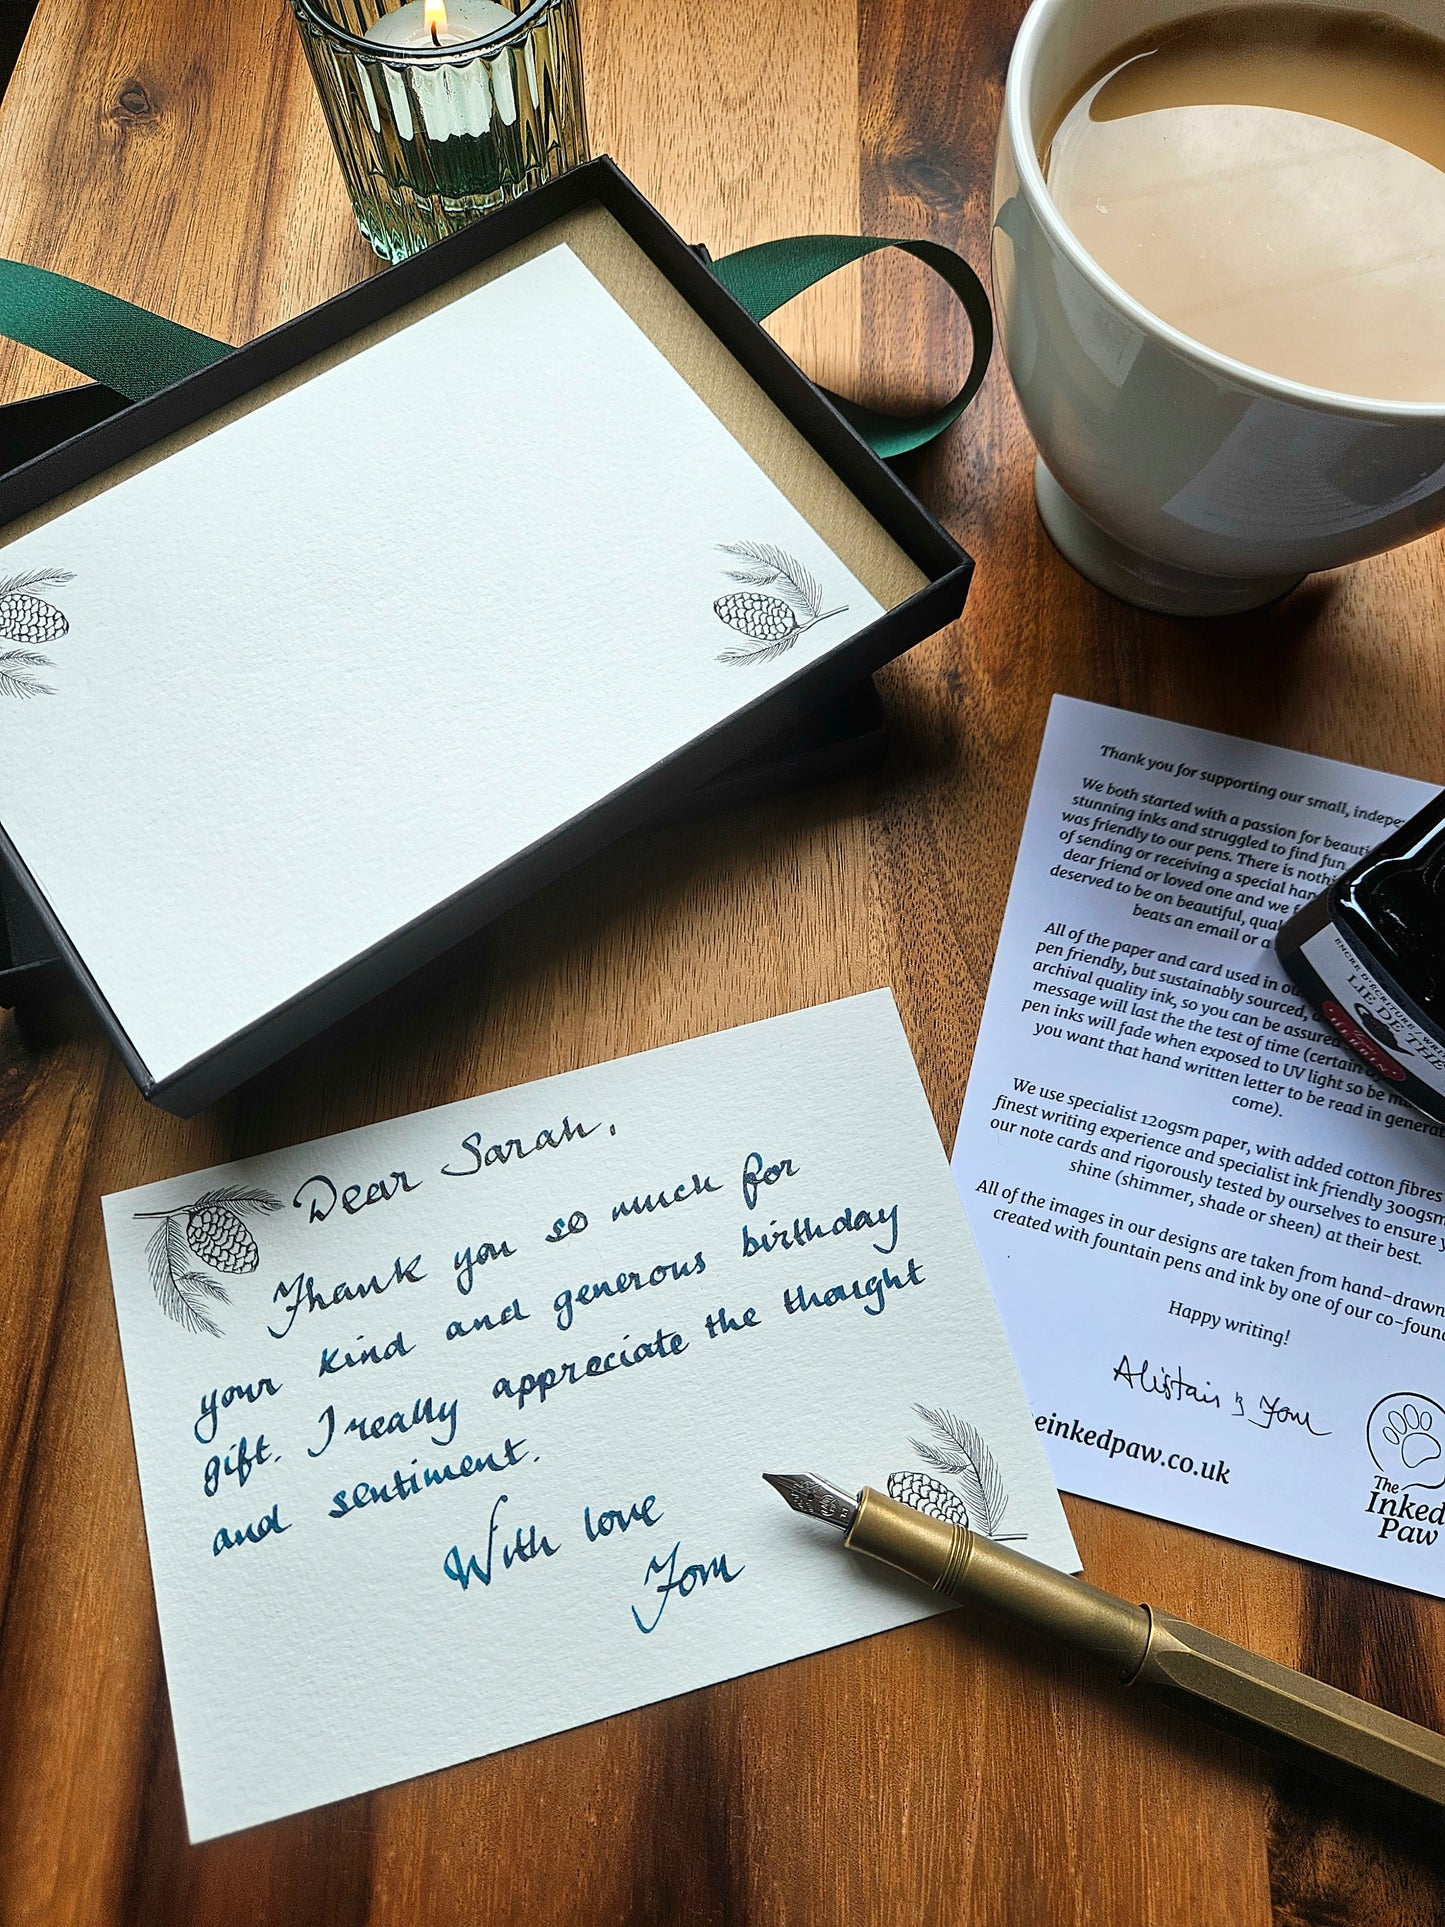 Dear Sarah,
Thank you so much for
your kind and generous birthday
gift. I really appreciate the thought
and sentiment.
With love
Tom
Thank you for supporting our small,
We both started with a passion for
stunning inks and struggled to find fun
was friendly to our pens. There is
of sending or receiving a special
dear friend or loved one and we
deserved to be on beautiful,
beats an email or a
All of the paper and card used in
pen friendly, but sustainably sourced,
archival quality ink, so you can be assured
message will last the the test of time (certain
pen inks will fade when exposed to UV light so be
you want that hand written letter to be read in
come).
We use specialist 120gsm paper, with added cotton fibres
finest writing experience and specialist ink friendly 300gsm
our note cards and rigorously tested by ourselves to ensure
shine (shimmer, shade or sheen) at their best.
All of the images in our designs are taken from hand-drawn
created with fountain pens and ink by one of our
Happy writing!
Alistair & Tom
einkedpaw.co.uk
The
Inked
Paw
LIE DE THÉ